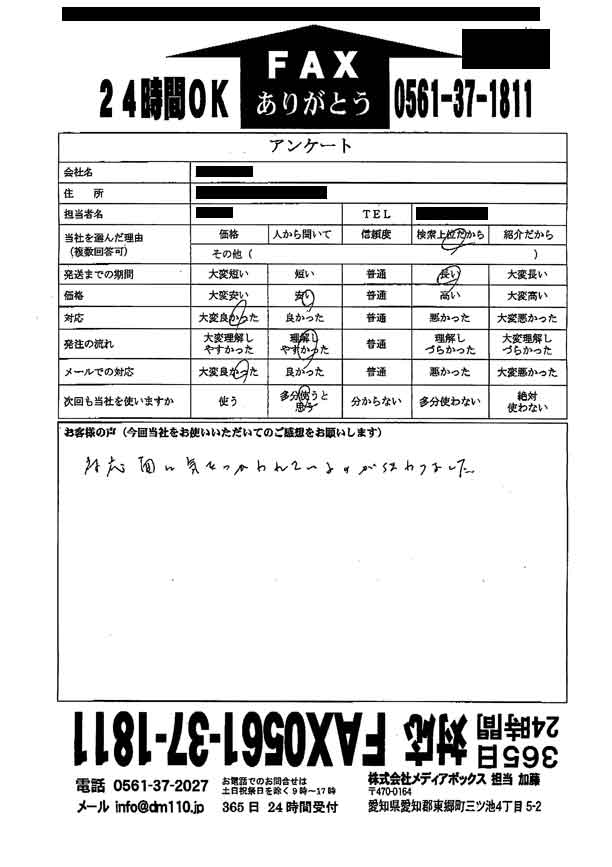 FAX
ありがとう
24時間OK
0561-37-1811
アンケート
会社名
住 所
担当者名 TEL
当社を選んだ理由(複数回答可) 価格 人から聞いて 信頼度 検索上位だから 紹介だから
その他( )
発送までの期間 大変短い 短い 普通 長い 大変長い
価格 大変安い 安い 普通 高い 大変高い
対応 大変良かった 良かった 普通 悪かった 大変悪かった
発注の流れ 大変理解しやすかった 理解しやすかった 普通 理解しづらかった 大変理解しづらかった
メールでの対応 大変良かった 良かった 普通 悪かった 大変悪かった
次回も当社を使いますか 使う 多分使うと思う 分からない 多分使わない 絶対使わない
お客様の声(今回当社をお使いいただいてのご感想をお願いします)
対応面に気をつかわれている が伝わりました
365日24時間対応 FAX0561-37-1811
電話 0561-37-2027
お電話でのお問合せは
土日祝祭日を除く9時~17時
株式会社メディアボックス 担当 加藤
〒470-0164
メール info@dm110.jp 365日 24時間受付 愛知県愛知郡東郷町三ツ池4丁目5-2